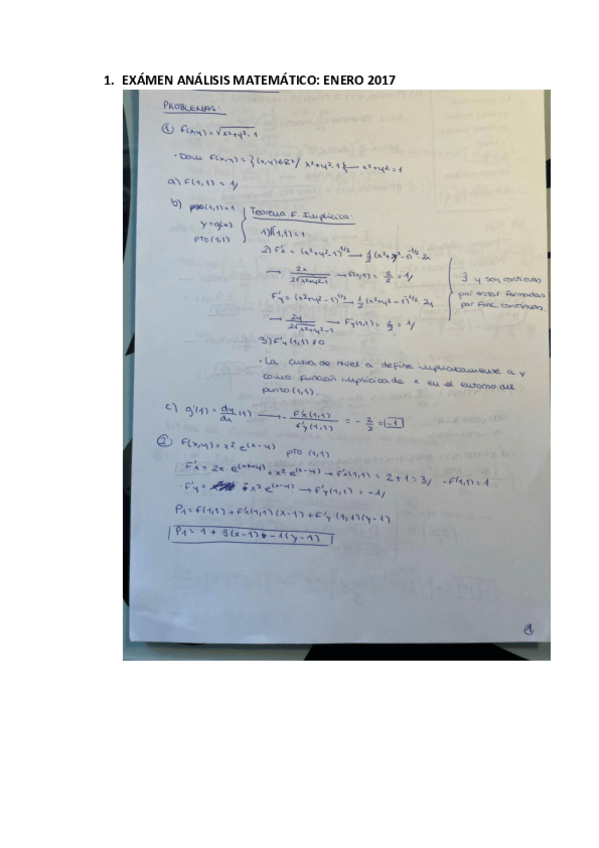 1. EXÁMEN ANÁLISIS MATEMÁTICO: ENERO 2017
PROBLEMAS:
① f(x,y)=√x²+y²-1
· Dom f(x,y) = {(x,y)∈R² / x²+y²-1
x²+y²=1
a) f(1,1) = 1//
b) pto(1,1)=1
y=g(x)
pto(1,1)
Teorema F. Implícita:
1) f(1,1)=1
2) F'x = (x²+y²-1)^1/2 → 1/2 (x²+y²-1)^-1/2 · 2x
→ 2x / 2√x²+y²-1 → f(1,1) = 2/2 = 1//
F'y = (x²+y²-1)^1/2 → 1/2 (x²+y²-1)^-1/2 · 2y
→ 2y / 2√x²+y²-1 → F'y(1,1) = = 1//
∃ y son continuas
por estar formadas
por func continuas.
3) F'y (1,1) ≠ 0
· La curva de nivel a define implícitamente a y
como función implícita de x en el entorno del
punto (1,1).
c) g'(1) = dy/dx (1) → - F'x(1,1) / F'y(1,1) = - 2/2 = -1
② f(x,y) = x² e^(x-y) pto (1,1)
· F'x = 2x · e^(x-y) + x² e^(x-y) → F'x(1,1) = 2+1 = 3// · f(1,1)=1
· F'y = x² e^(x-y) → F'y(1,1) = -1//
P1 = f(1,1) + F'x(1,1)(x-1) + F'y (1,1)(y-1)
P1 = 1 + 3(x-1) + -1(y-1)